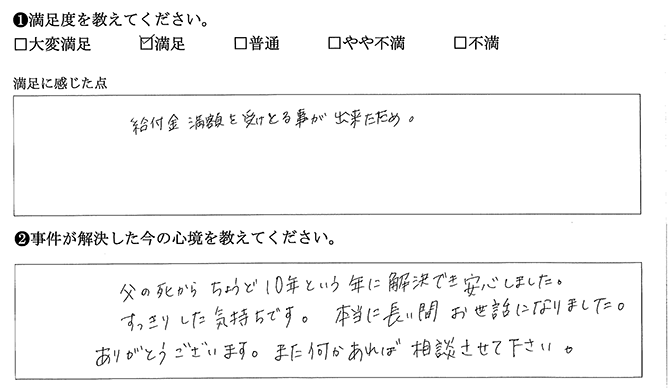 ❶満足度を教えてください。
□大変満足 ☑満足 □普通 □やや不満 □不満
満足に感じた点
給付金満額を受けとる事が出来たため。
❷事件が解決した今の心境を教えてください。
父の死からちょうど10年という年に解決でき安心しました。
すっきりした気持ちです。本当に長い間お世話になりました。
ありがとうございます。また何かあれば相談させて下さい。